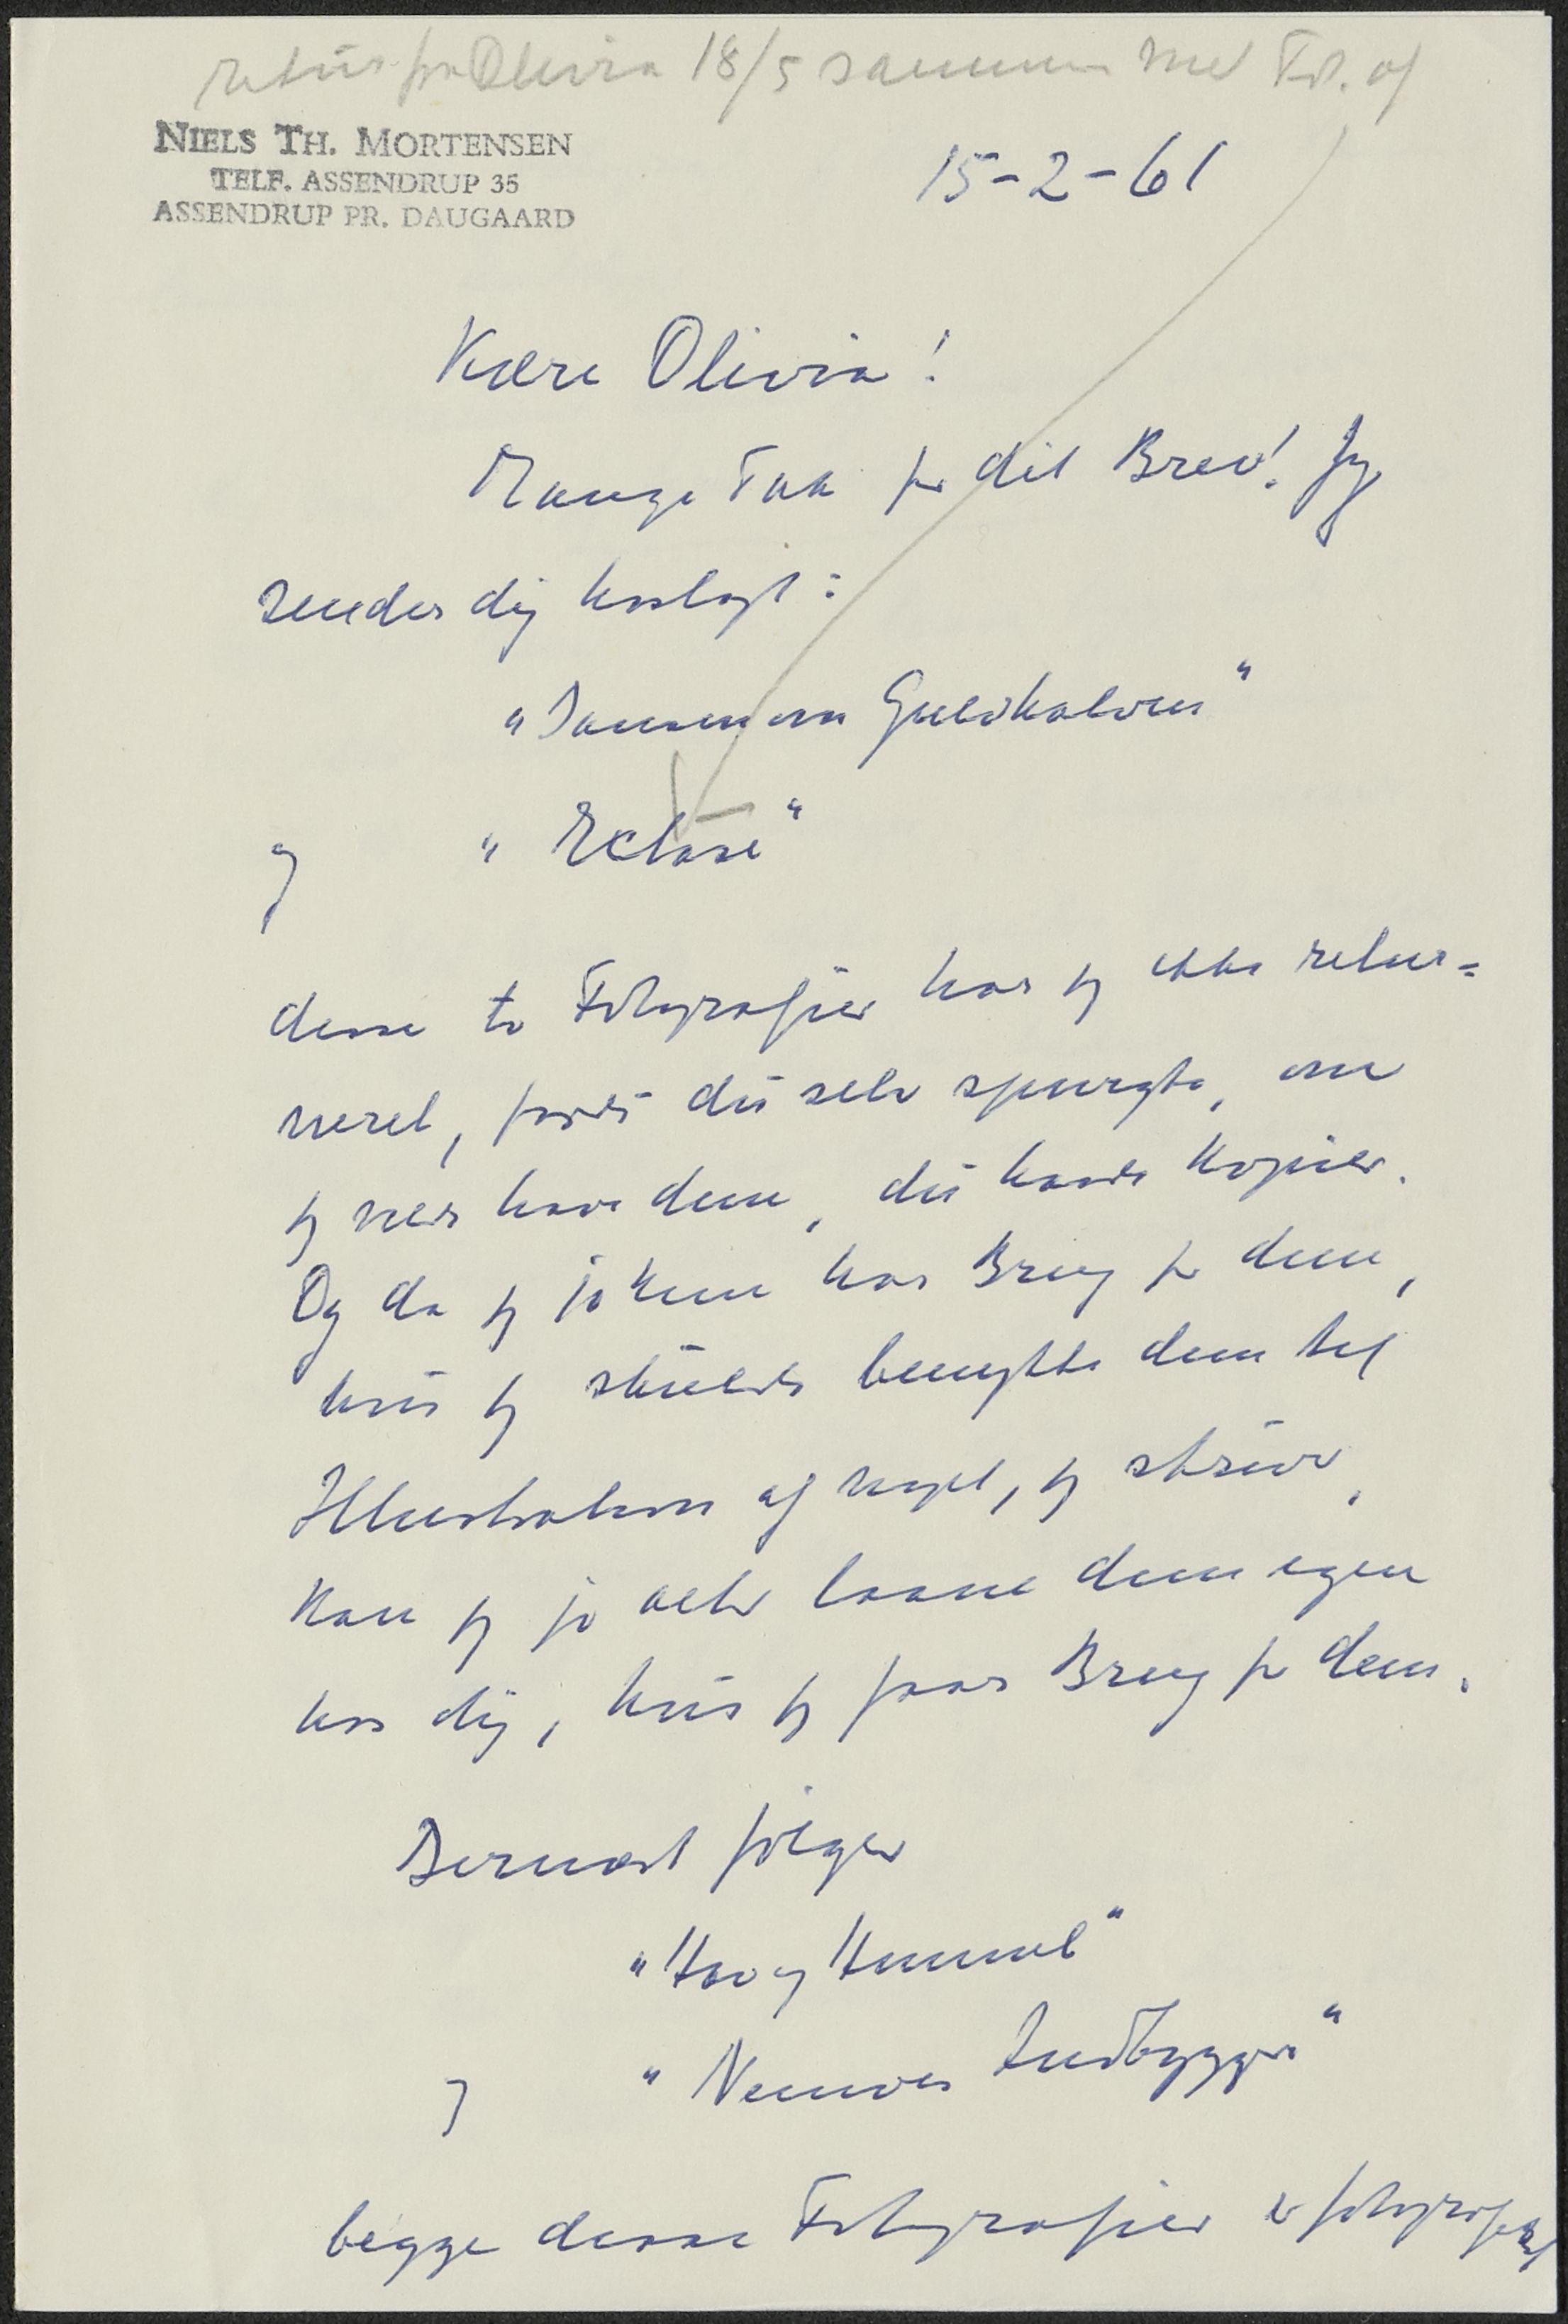 retur fra Olivia 18/5 sammen med Fot. af
NIELS TH. MORTENSEN
TELF. ASSENDRUP 35
ASSENDRUP PR. DAUGAARD
15-2-61
Kære Olivia!
Mange Tak for dit Brev! Jeg
sender dig hoslagt:
"Dansen om Guldkalven"
og "Extase"
disse to Fotografier har jeg ikke retur=
neret, fordi du selv spurgte, om
jeg vilde have dem, du havde Kopier.
Og da jeg jo kun har Brug for dem,
hvis jeg skulde benytte dem til
Illustration af noget, jeg skriver,
kan jeg jo altid laane dem igen
hos dig, hvis jeg faar Brug for dem.
Dernæst følger
"Hav og Himmel"
og "Nennoes Indbyggere"
begge disse Fotografier er fotograferet